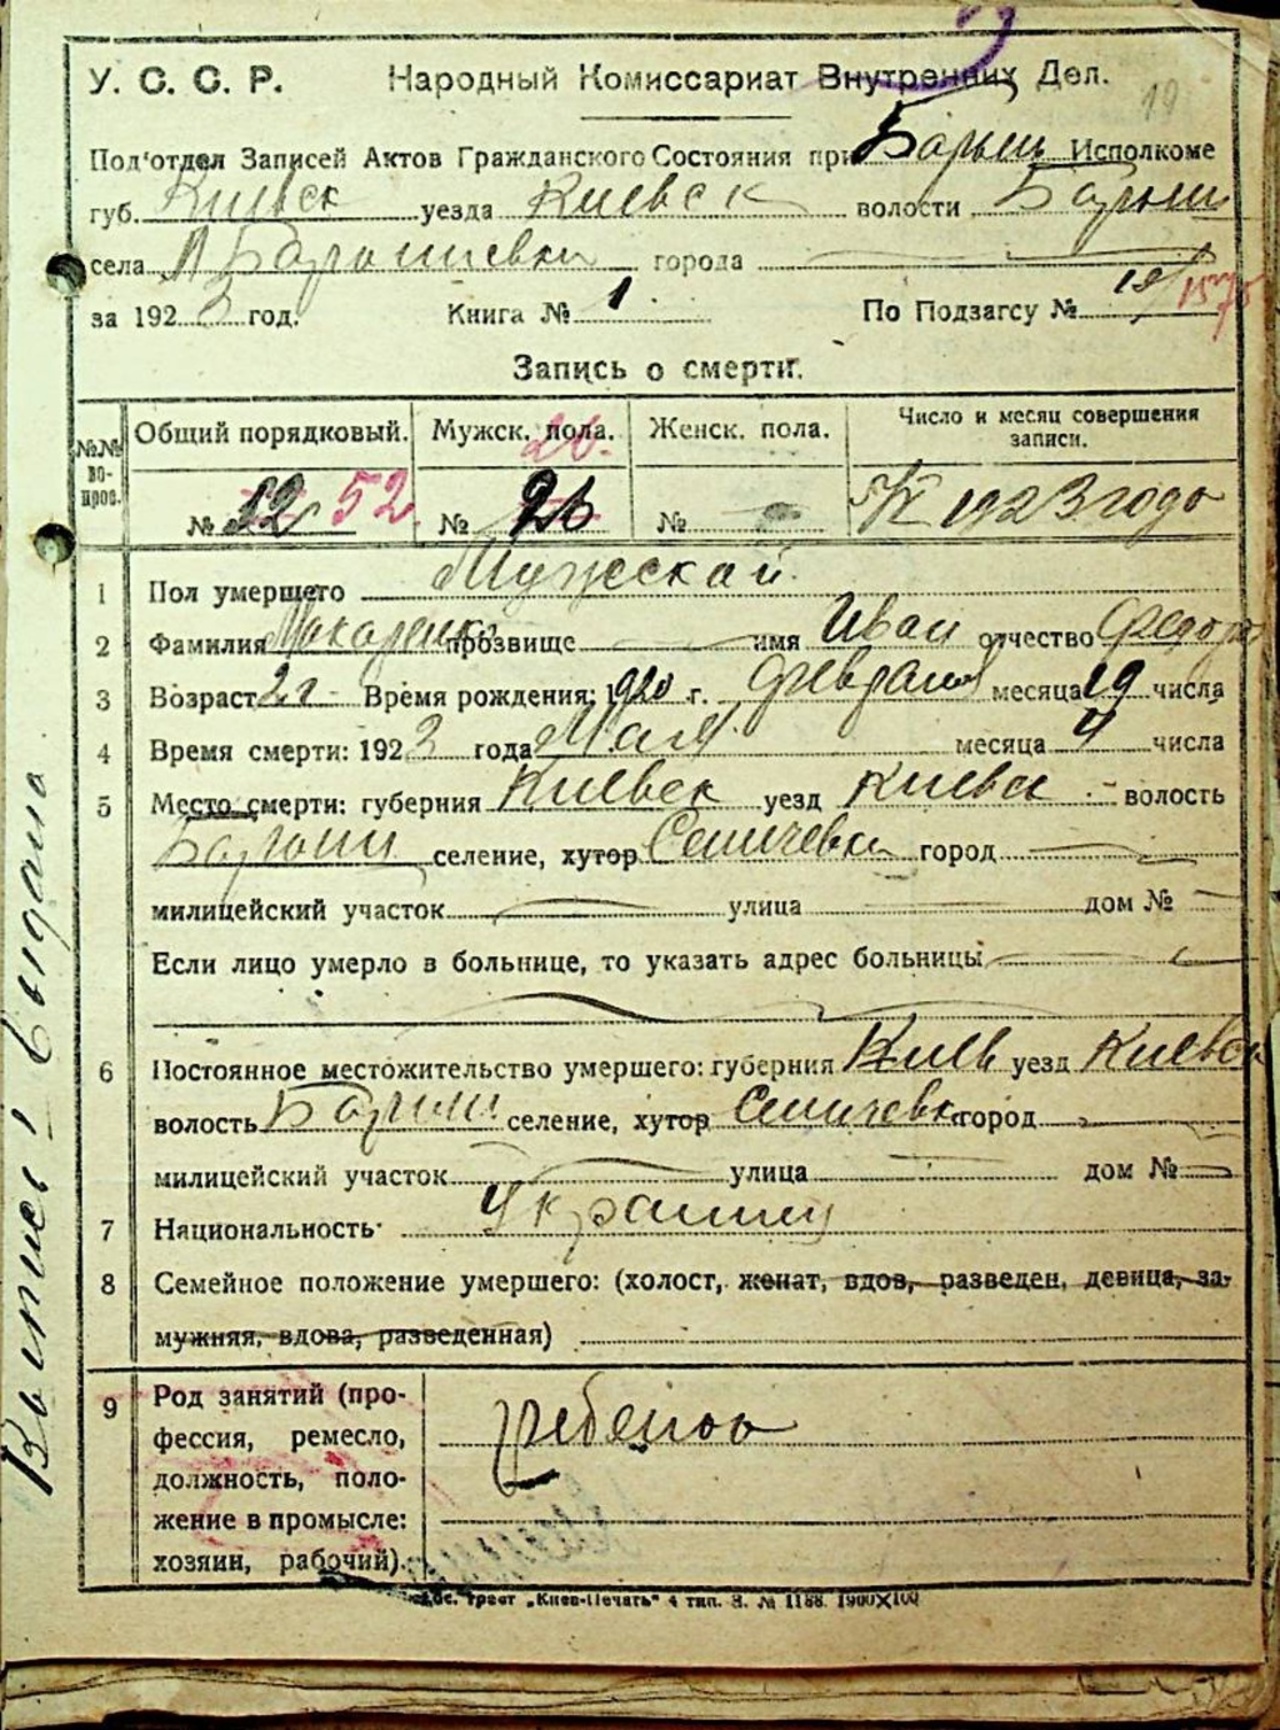 19
У. С. С. Р. Народный Комиссариат Внутренних Дел.
Под'отдел Записей Актов Гражданского Состояния при Барыш Исполкоме
губ. Киевск уезда Киевск волости Барыш
села М Барышевки города
за 1923 год. Книга № 1. По Подзагсу №
Запись о смерти.
№№ вопров. Общий порядковый. Мужск. пола. 26. Женск. пола. Число и месяц совершения записи.
№ 52 52 № 26 № 5/V 1923 года
1 Пол умершего Мужеской
2 Фамилия Макаренко прозвище имя Иван отчество Федор
3 Возраст 2 г Время рождения: 1920 г. февраля месяца 19 числа
4 Время смерти: 1923 года Мая месяца 4 числа
5 Место смерти: губерния Киевск уезд Киевск волость
Барыш селение, хутор Сеничевки город
милицейский участок улица дом №
Если лицо умерло в больнице, то указать адрес больницы
6 Постоянное местожительство умершего: губерния Киев уезд Киевск
волость Барыш селение, хутор Сеничевк город
милицейский участок улица дом №
7 Национальность Украинец
8 Семейное положение умершего: (холост, женат, вдов, разведен, девица, за-
мужняя, вдова, разведенная)
9 Род занятий (про-
фессия, ремесло, ребенок
должность, поло-
жение в промысле:
хозяин, рабочий).
Гос. трест „Киев-Печать“ 4 тип. З. № 1188. 1900×100
Выпись выдана